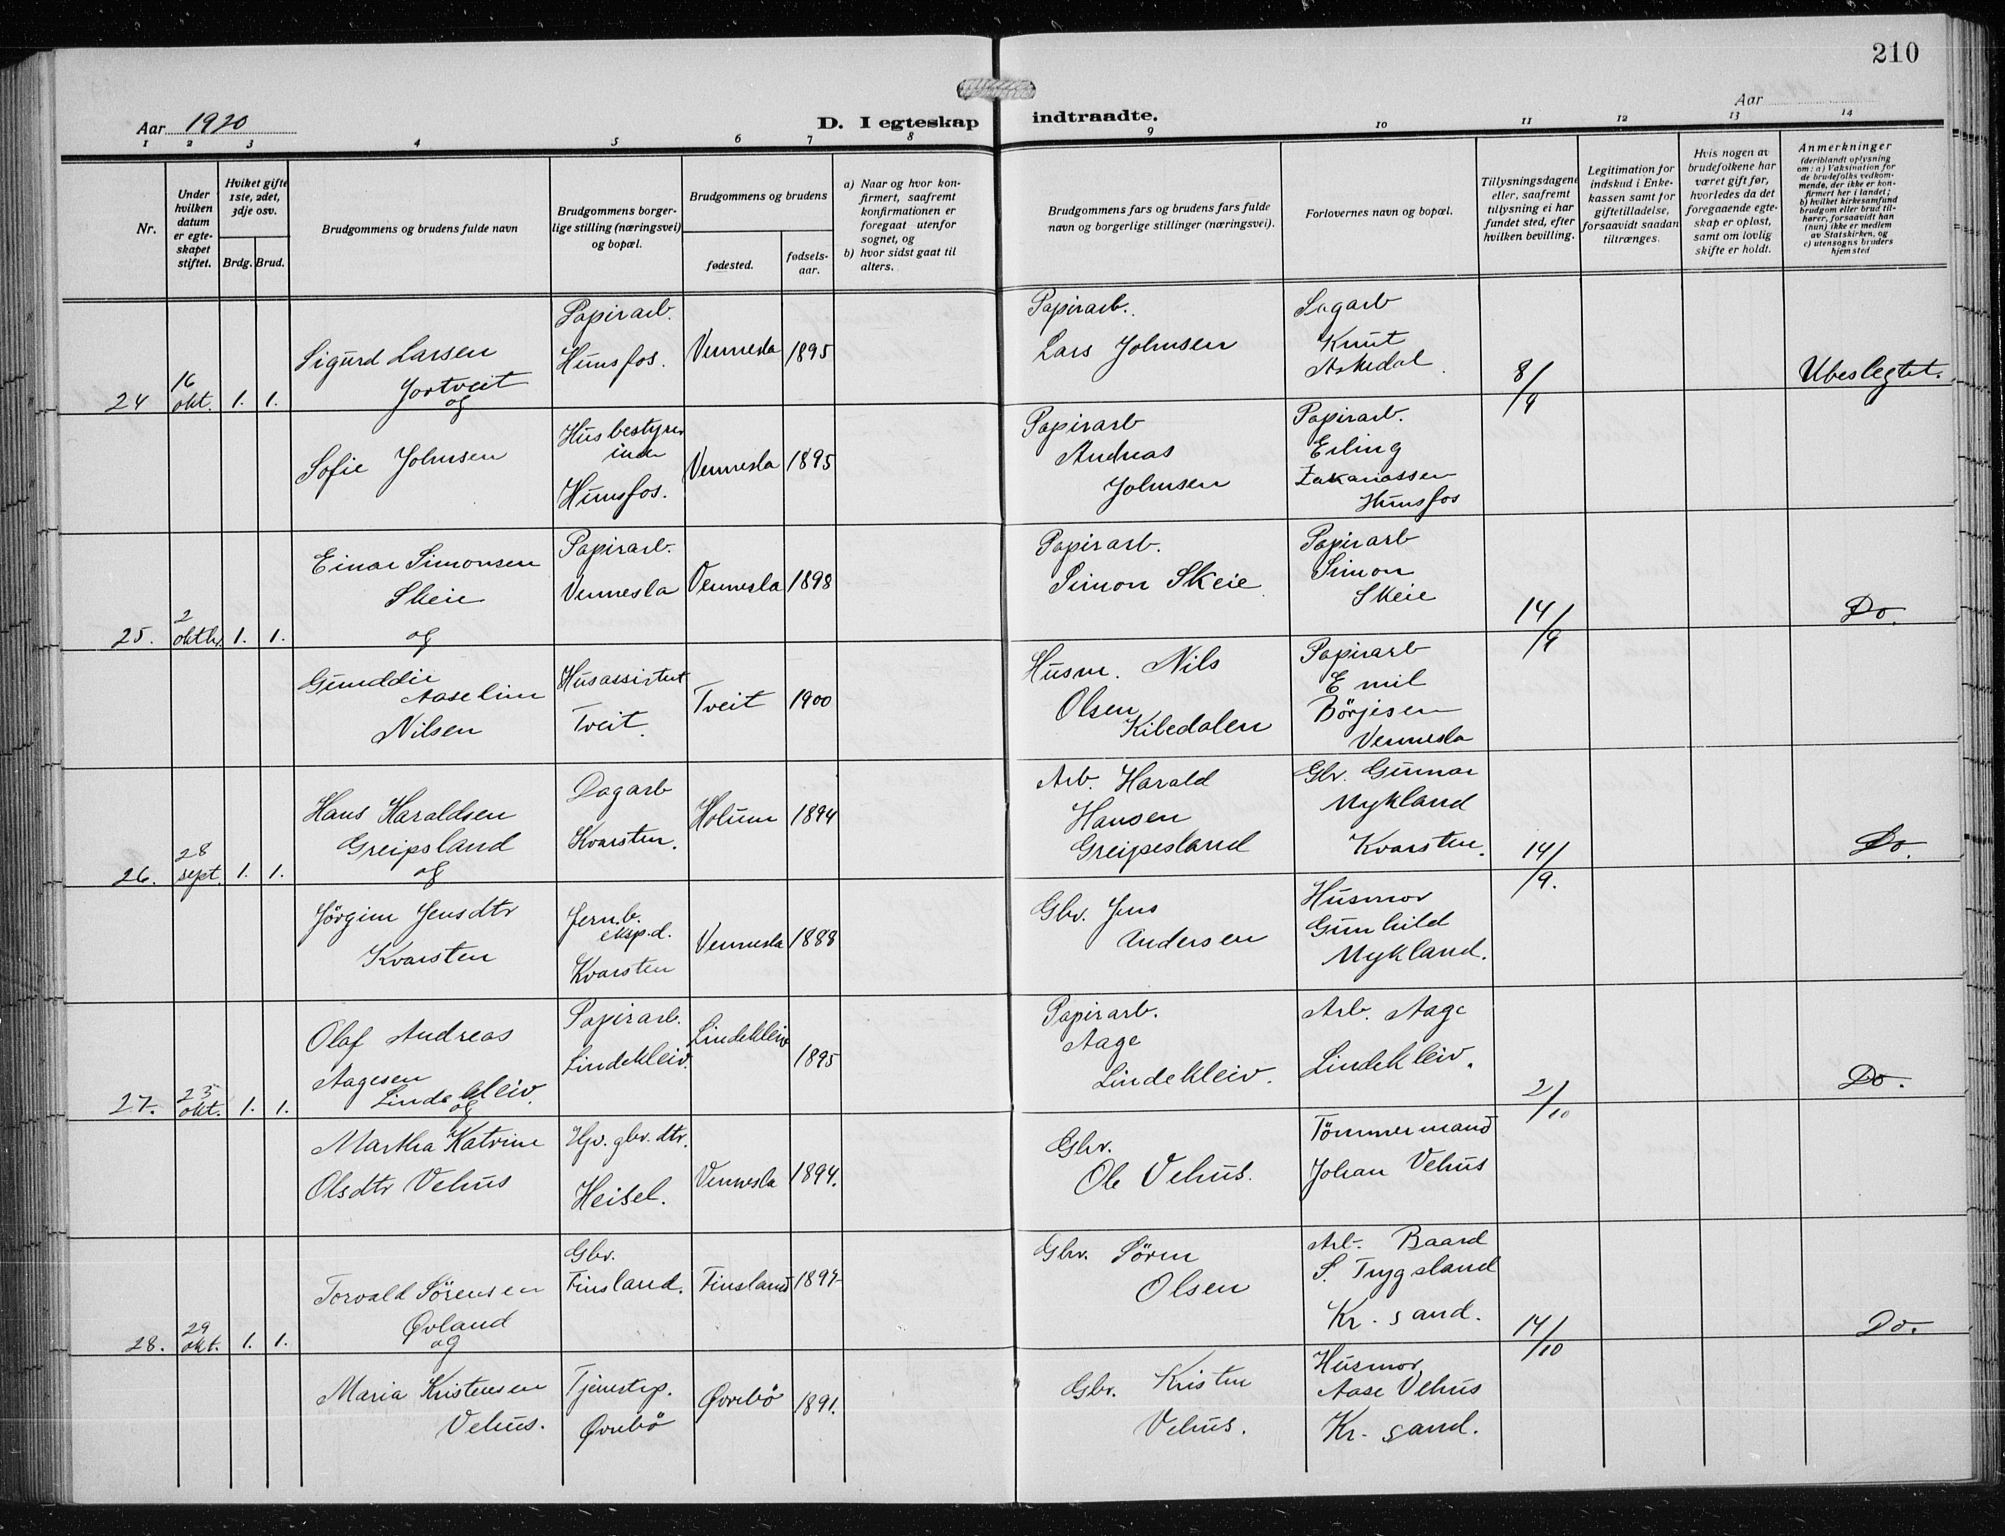 210
Aar 1920
D. I egteskap indtraadte.
Aar
1 2 3 4 5 6 7 8 9 10 11 12 13 14
Nr.
Under hvilken datum er egteskapet stiftet.
Hviket gifte 1ste, 2det, 3dje osv.
Brdg. Brud.
Brudgommens og brudens fulde navn
Brudgommens borgerlige stilling (næringsvei) og bopæl.
Brudgommens og brudens
fødested.
fødselsaar.
a) Naar og hvor konfirmert, saafremt konfirmationen er foregaat utenfor sognet, og
b) hvor sidst gaat til alters.
Brudgommens fars og brudens fars fulde navn og borgerlige stillinger (næringsvei).
Forlovernes navn og bopæl.
Tillysningsdagene eller, saafremt tillysning ei har fundet sted, efter hvilken bevilling.
Legitimation for indskud i Enkekassen samt for giftetilladelse, forsaavidt saadan tiltrænges.
Hvis nogen av brudefolkene har været gift før, hvorledes da det foregaaende egteskap er opløst, samt om lovlig skifte er holdt.
Anmerkninger
(deriblandt oplysning om: a) Vaksination for de brudefolks vedkommende, der ikke er konfirmert her i landet;
b) hvilket kirkesamfund brudgom eller brud tilhører, forsaavidt han (hun) ikke er medlem av Statskirken, og
c) utensogns bruders hjemsted
24
16 okt.
1. 1.
Sigurd Larsen
Jortveit
og
Papirarb.
Hunsfos.
Vennesla
1895
Papirarb.
Lars Johnsen
Sagarb
Knut
Askedal
8/9
Ubeslegtet.
Sofie Johnsen
Husbestyrer
inde
Hunsfos.
Vennesla
1895
Papirarb
Andreas
Johnsen
Papirarb.
Erling
Zakariassen
Hunsfos
25.
2 oktb.
1. 1.
Einar Simonsen
Skeie
og
Papirarb.
Vennesla
Vennesla
1898
Papirarb.
Simon Skeie
Papirarb
Simon
Skeie
14/9
Do.
Gunddie
Aaseline
Nilsen
Husassistent
Tveit.
Tveit
1900
Husm. Nils
Olsen
Kiledalen
Papirarb
Emil
Börjesen
Vennesla
26.
28 sept.
1. 1.
Hans Haraldsen
Greipsland
og
Dagarb
Kvarsten.
Holum
1894
Arb. Harald
Hansen
Greipesland
Gbr. Gunnar
Mykland
Kvarsten.
14/9.
Do.
Jörgine Jensdtr
Kvarsten
Jernb.
eksp.d.
Kvarsten
Vennesla
1888
Gbr. Jens
Andersen
Husmor
Gunhild
Mykland.
27.
23 okt.
1. 1.
Olaf Andreas
Aagesen
Lindekleiv.
og
Papirarb.
Lindekleiv.
Lindekleiv
1895
Papirarb.
Aage
Lindekleiv.
Arb. Aage
Lindekleiv.
2/10
Do.
Martha Katrine
Olsdtr Vehus
Hjv. gbr. dtr.
Heisel.
Vennesla
1894.
Gbr.
Ole Vehus.
Tömmermand
Johan Vehus
28.
29 okt.
1. 1.
Torvald Sörensen
Øvland
og
Gbr.
Finsland.
Finsland
1897
Gbr. Sörn
Olsen
Arb. Baard
S. Trygsland
Kr. sand.
14/10
Do.
Maria Kristensen
Vehus.
Tjenestep.
Øvrebö
Øvrebö
1891.
Gbr. Kristen
Vehus.
Husmor
Aase Vehus
Kr. sand.